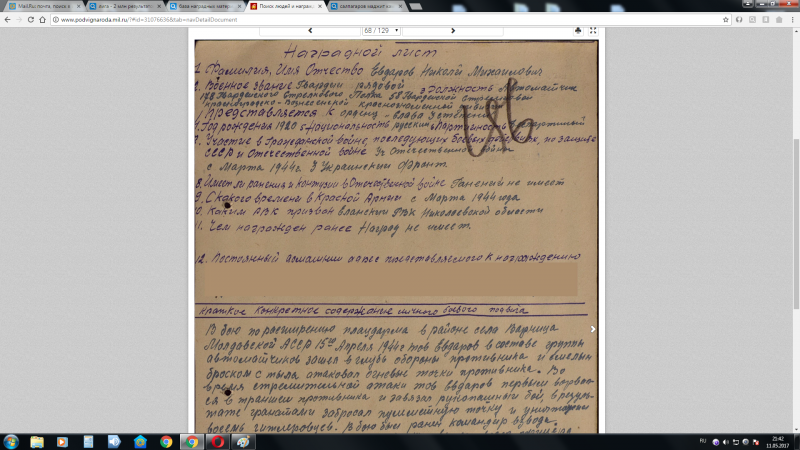 Mail.Ru: почта, поиск в
лига - 2 млн результато
база наградных матери
Поиск людей и награжд
саллагаров надиой ма
www.podvignaroda.mil.ru/?#id=31076636&tab=navDetailDocument
68 / 129
Наградной лист
1. Фамилия, Имя Отчество Евдаров Николй Михайлович
2. Военное звание Гвардии рядовой 3 Должность Автоматчик
178 Гвардейского Стрелкового Полка 58 Гвардейской Стрелковой
Красноградско-Вознесенской Краснознаменной
Представляется к ордену - Слава 3 степени
Год рождения 1920 5 Национальность русский 6 Партийность беспартийный
7. Участие в Гражданской войне, последующих боевых действиях по защите
СССР и Отечественной войне В Отечественной войне
с Марта 1944 г 3 Украинский Фронт.
8. Имеет ли ранения и контузии в Отечественной войне Ранений не имеет
9. С какого времени в Красной Армии с Марта 1944 года
10. Каким РВК призван РВК Николаевской области
11. Чем награжден ранее Наград не имеет.
12. Постоянный домашний адрес представляемого к награждению
Краткое конкретное содержание личного боевого подвига
В бою по расширению плацдарма в районе села
Молдавской АССР 15го Апреля 1944 г тов Евдаров в составе группы
автоматчиков зашел в глубь обороны противника и смелым
броском с тыла атаковал огневые точки противника. Во
время стремительной атаки тов Евдаров первым ворвал-
ся в траншеи противника и завязал рукопашный бой, в резуль-
тате гранатами забросал пулеметную точку и уничтожил
восемь гитлеровцев. В бою был ранен командир взвода.
RU
21:42
11.05.2017